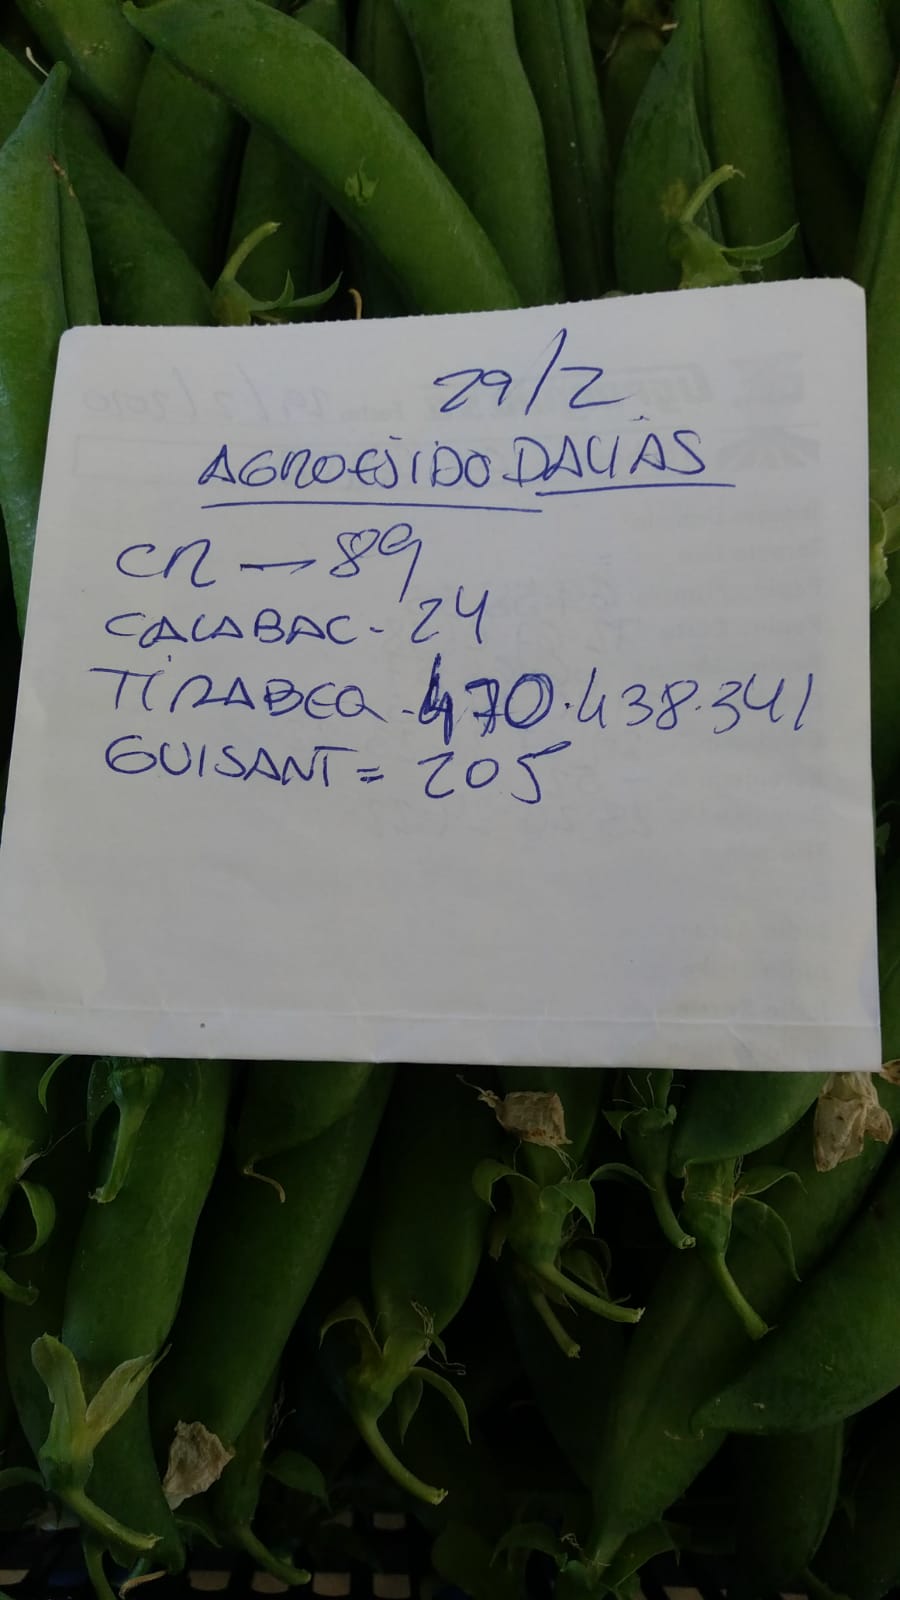 29/2
AGROEJIDO DALIAS
CR - 89
CALABAC - 24
TIRABEQ - 470.438.341
GUISANT = 205